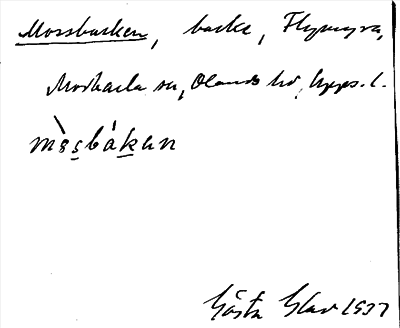 Mossbacken, backe, Flymyra,
Morkarla sn, Olands hd, Upps. l.
mòsbákɐn
Gösta Glav 1937